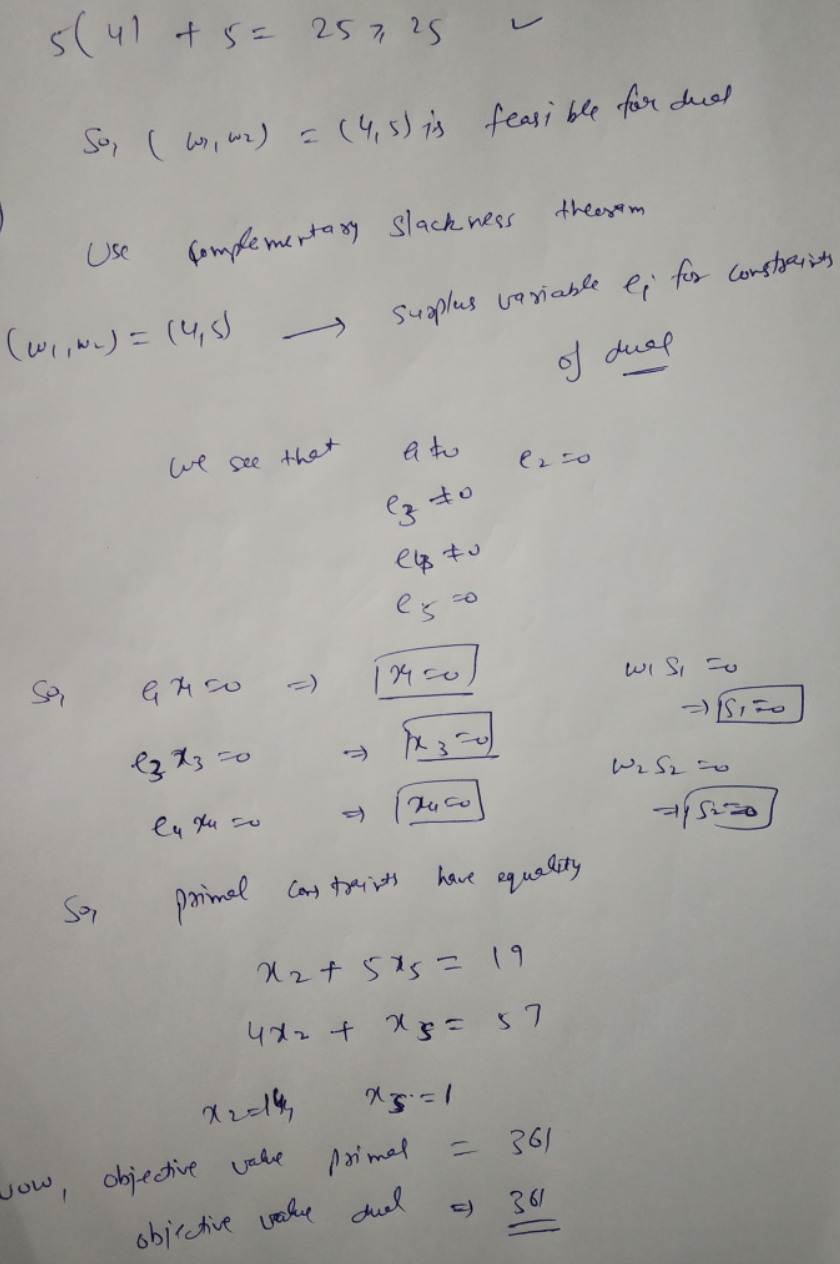 5(4) + 5 = 25 ≥ 25 ✓
So, (w1, w2) = (4,5) is feasible for dual
Use complementary slackness theorem
(w1, w2) = (4,5) → surplus variable ei for constraints
of dual
we see that e1 ≠ 0 e2 = 0
e3 ≠ 0
e4 ≠ 0
e5 = 0
So, e1 x1 = 0 ⇒ x1 = 0 w1 s1 = 0
⇒ s1 = 0
e3 x3 = 0 ⇒ x3 = 0 w2 s2 = 0
e4 x4 = 0 ⇒ x4 = 0 ⇒ s2 = 0
So, primal constraints have equality
x2 + 5x5 = 19
4x2 + x5 = 57
x2 = 14, x5 = 1
Now, objective value primal = 361
objective value dual ⇒ 361